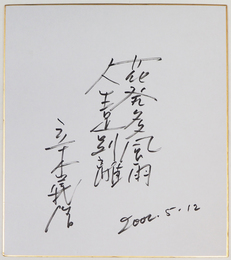 花発多風雨
人生足別離
2002.5.12